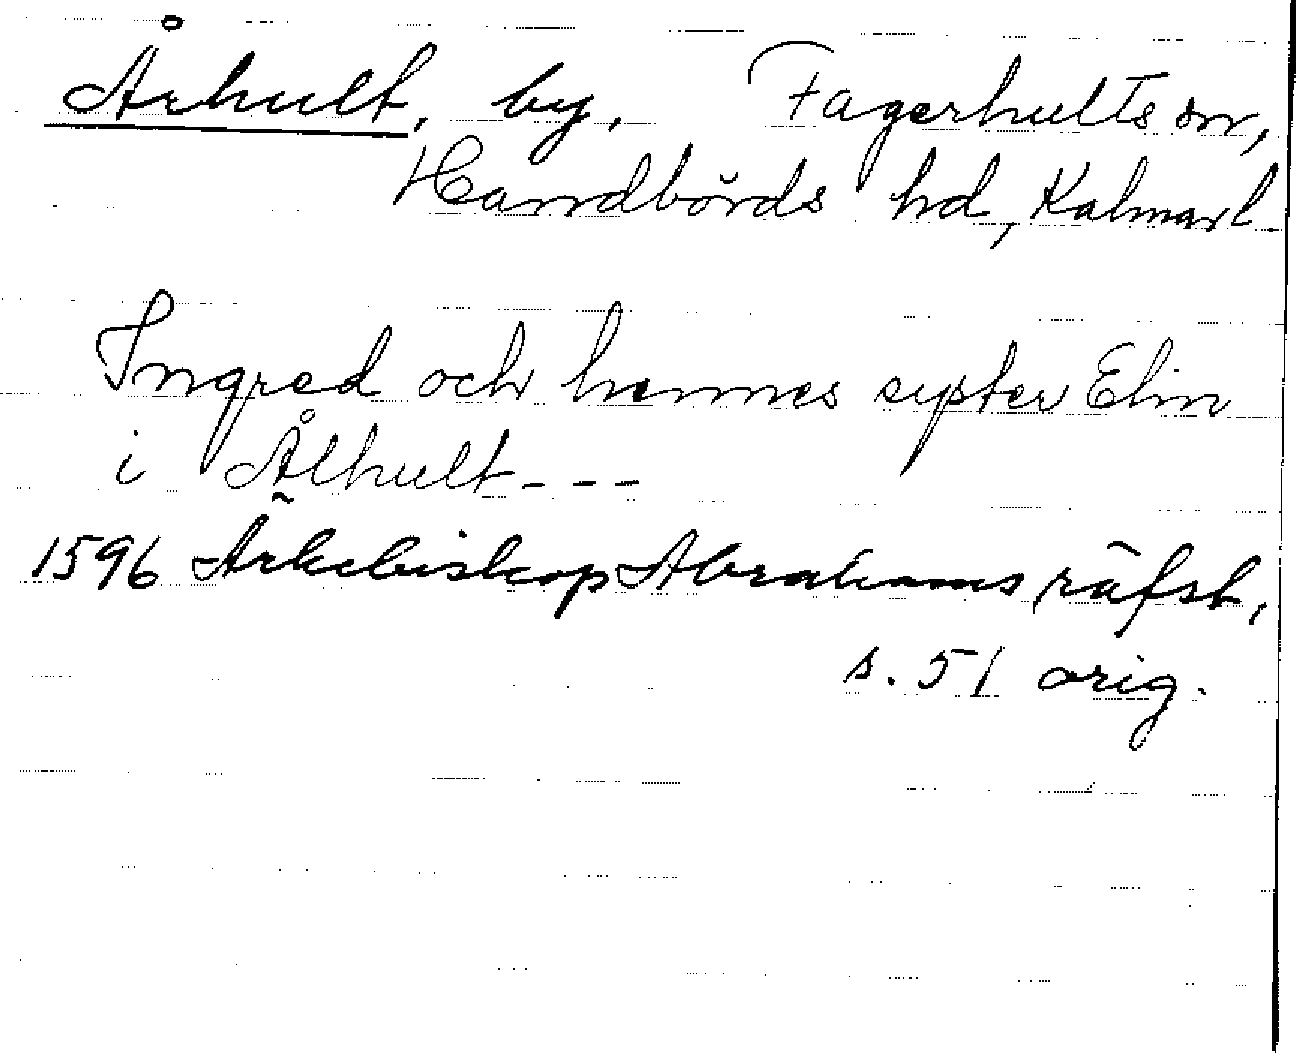 Århult, by, Fagerhults sn,
Handbörds hd, Kalmar l.
Ingred och hennes syster Elin
i Ålhult - - -
1596 Ärkebiskop Abrahams räfst,
s. 51 orig.